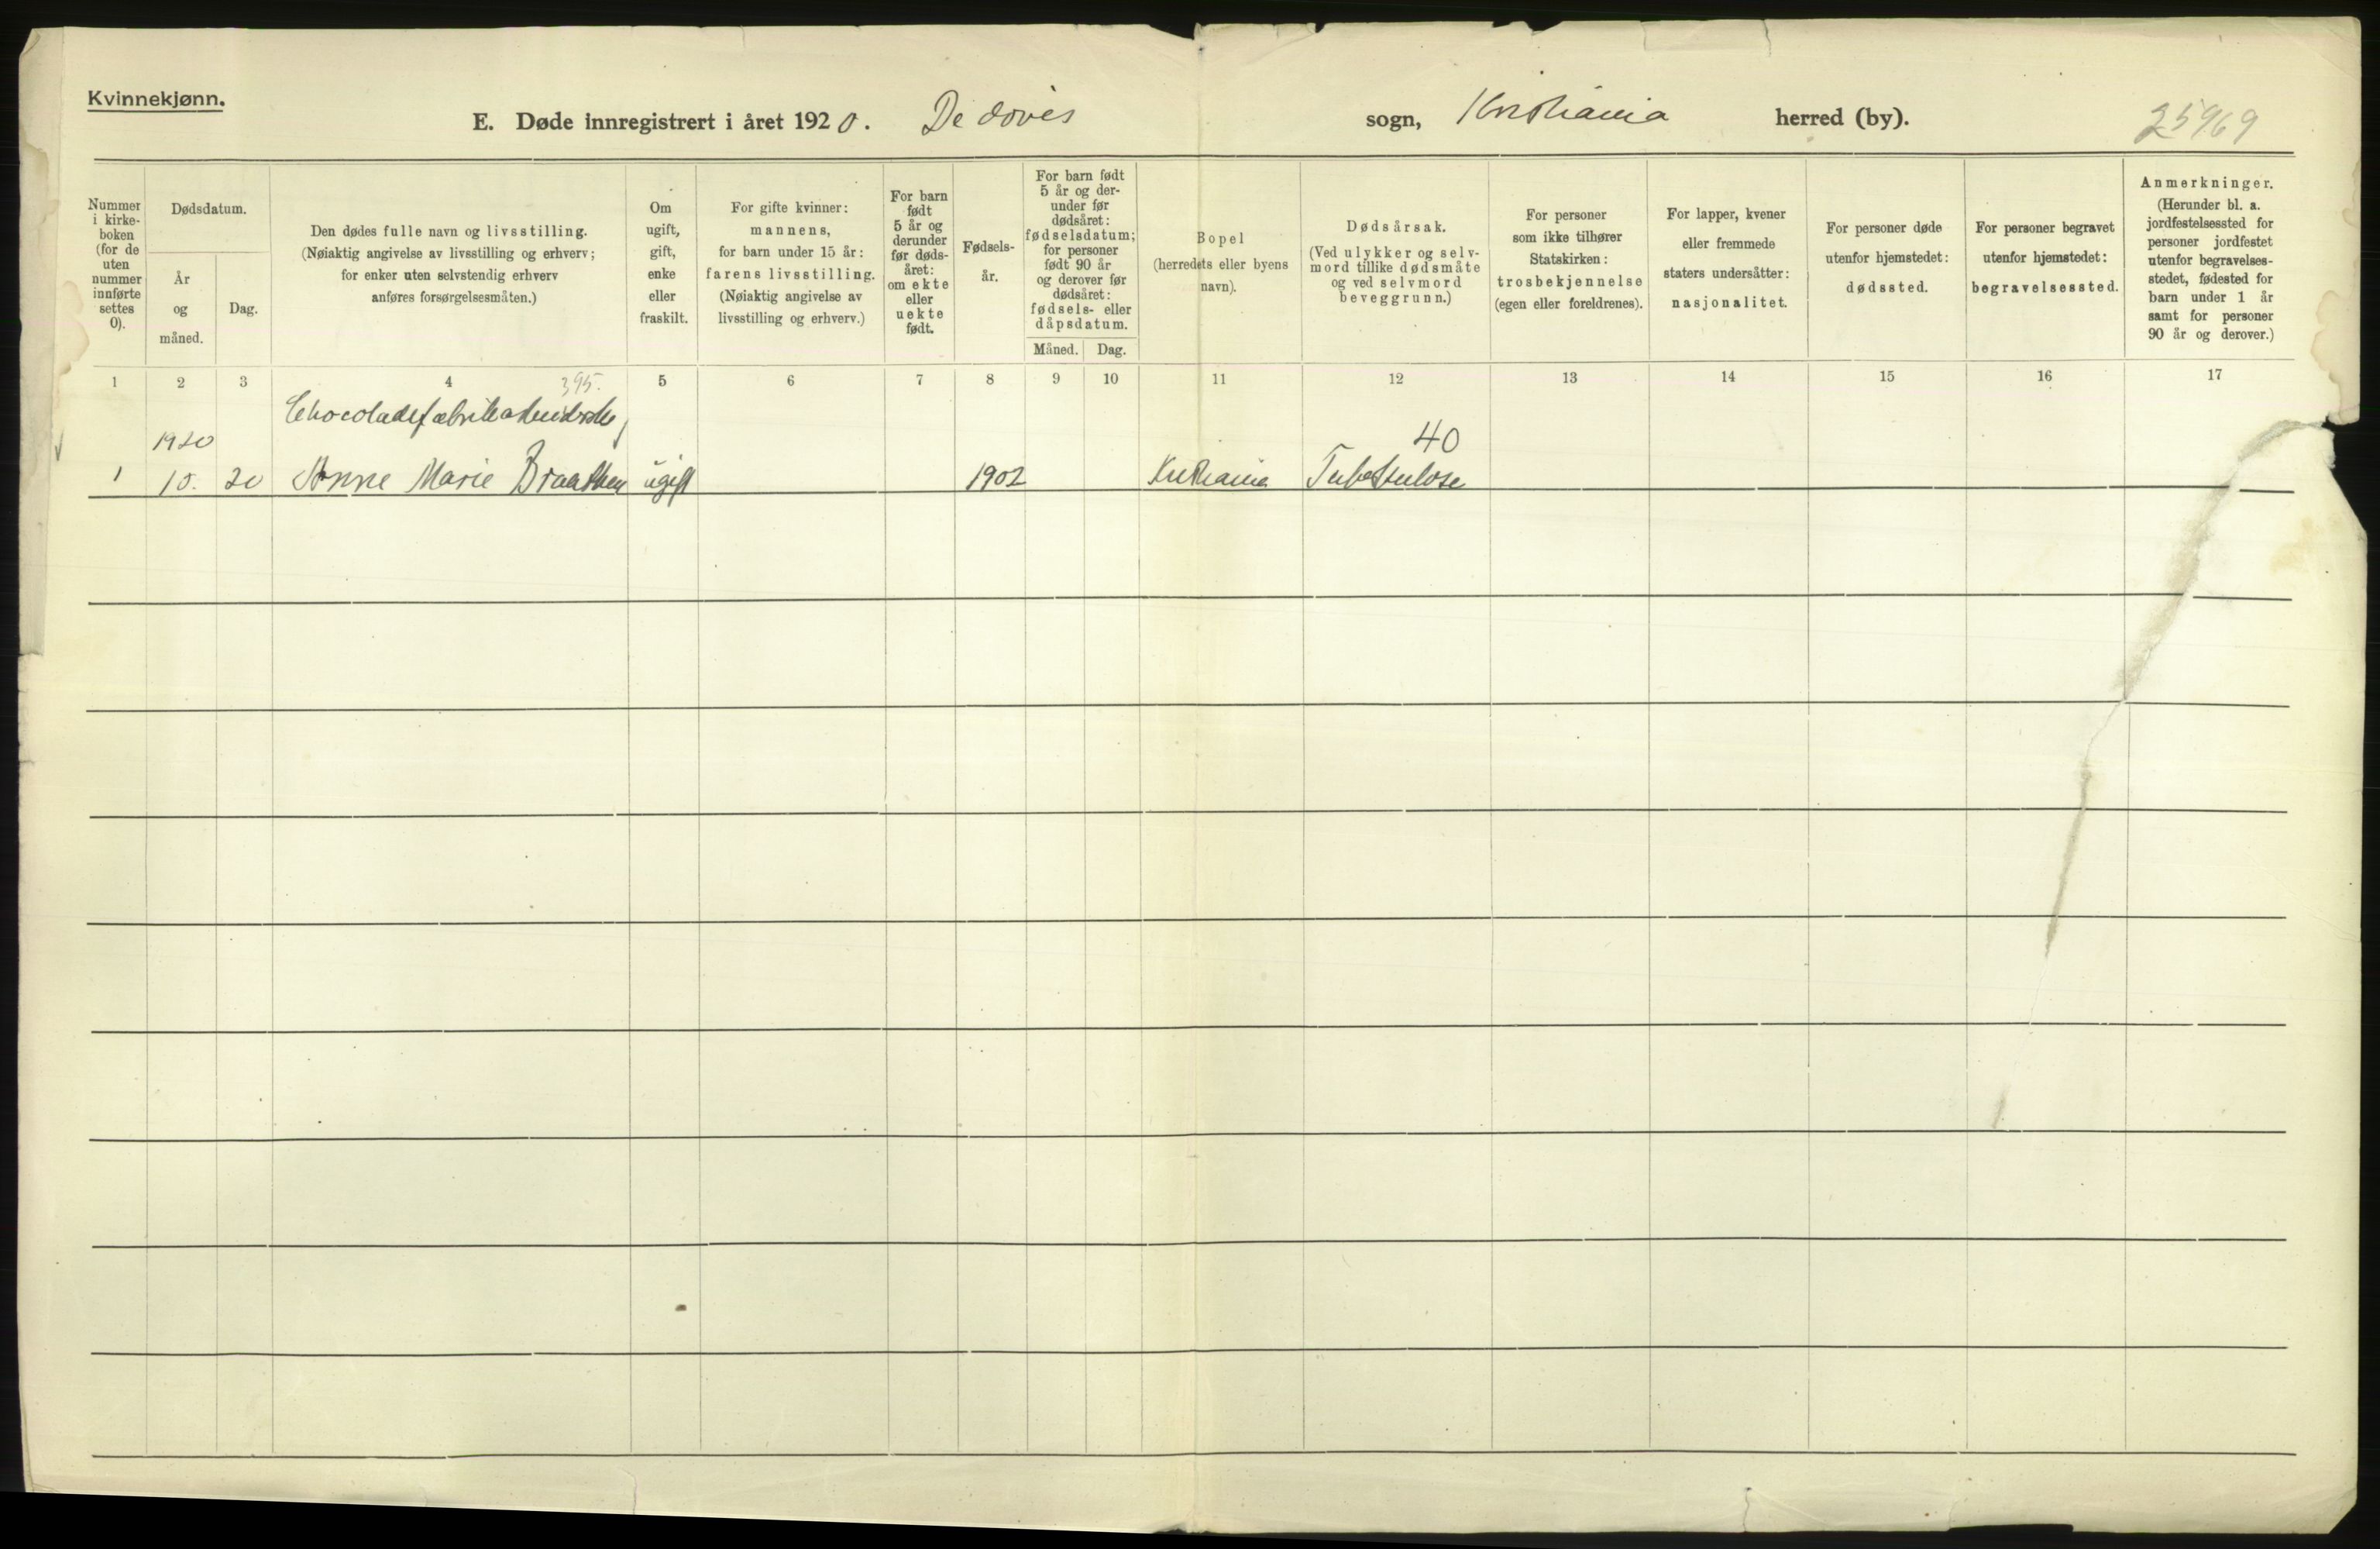 Kvinnekjønn.
E. Døde innregistrert i året 1920. De døves sogn, Kristiania herred (by). 25969
Nummer
i kirke-
boken
(for de
uten
nummer
innførte
settes
0).
Dødsdatum.
År
og
måned.
Dag.
Den dødes fulle navn og livsstilling.
(Nøiaktig angivelse av livsstilling og erhverv;
for enker uten selvstendig erhverv
anføres forsørgelsesmåten.)
Om
ugift,
gift,
enke
eller
fraskilt.
For gifte kvinner:
mannens,
for barn under 15 år:
farens livsstilling.
(Nøiaktig angivelse av
livsstilling og erhverv.)
For barn
født
5 år og
derunder
før døds-
året:
om ekte
eller
uekte
født.
Fødsels-
år.
For barn født
5 år og der-
under før
dødsåret:
fødselsdatum;
for personer
født 90 år
og derover før
dødsåret:
fødsels- eller
dåpsdatum.
Måned. Dag.
Bopel
(herredets eller byens
navn).
Dødsårsak.
(Ved ulykker og selv-
mord tillike dødsmåte
og ved selvmord
beveggrunn.)
For personer
som ikke tilhører
Statskirken:
trosbekjennelse
(egen eller foreldrenes).
For lapper, kvener
eller fremmede
staters undersåtter:
nasjonalitet.
For personer døde
utenfor hjemstedet:
dødssted.
For personer begravet
utenfor hjemstedet:
begravelsessted.
Anmerkninger.
(Herunder bl. a.
jordfestelsessted for
personer jordfestet
utenfor begravelses-
stedet, fødested for
barn under 1 år
samt for personer
90 år og derover.)
1 2 3 4 5 6 7 8 9 10 11 12 13 14 15 16 17
395.
Chocoladefabrikarbeiderske,
1920 40
1 10. 20 Anne Marie Braathen ugift 1902 Kristiania Tuberkulose